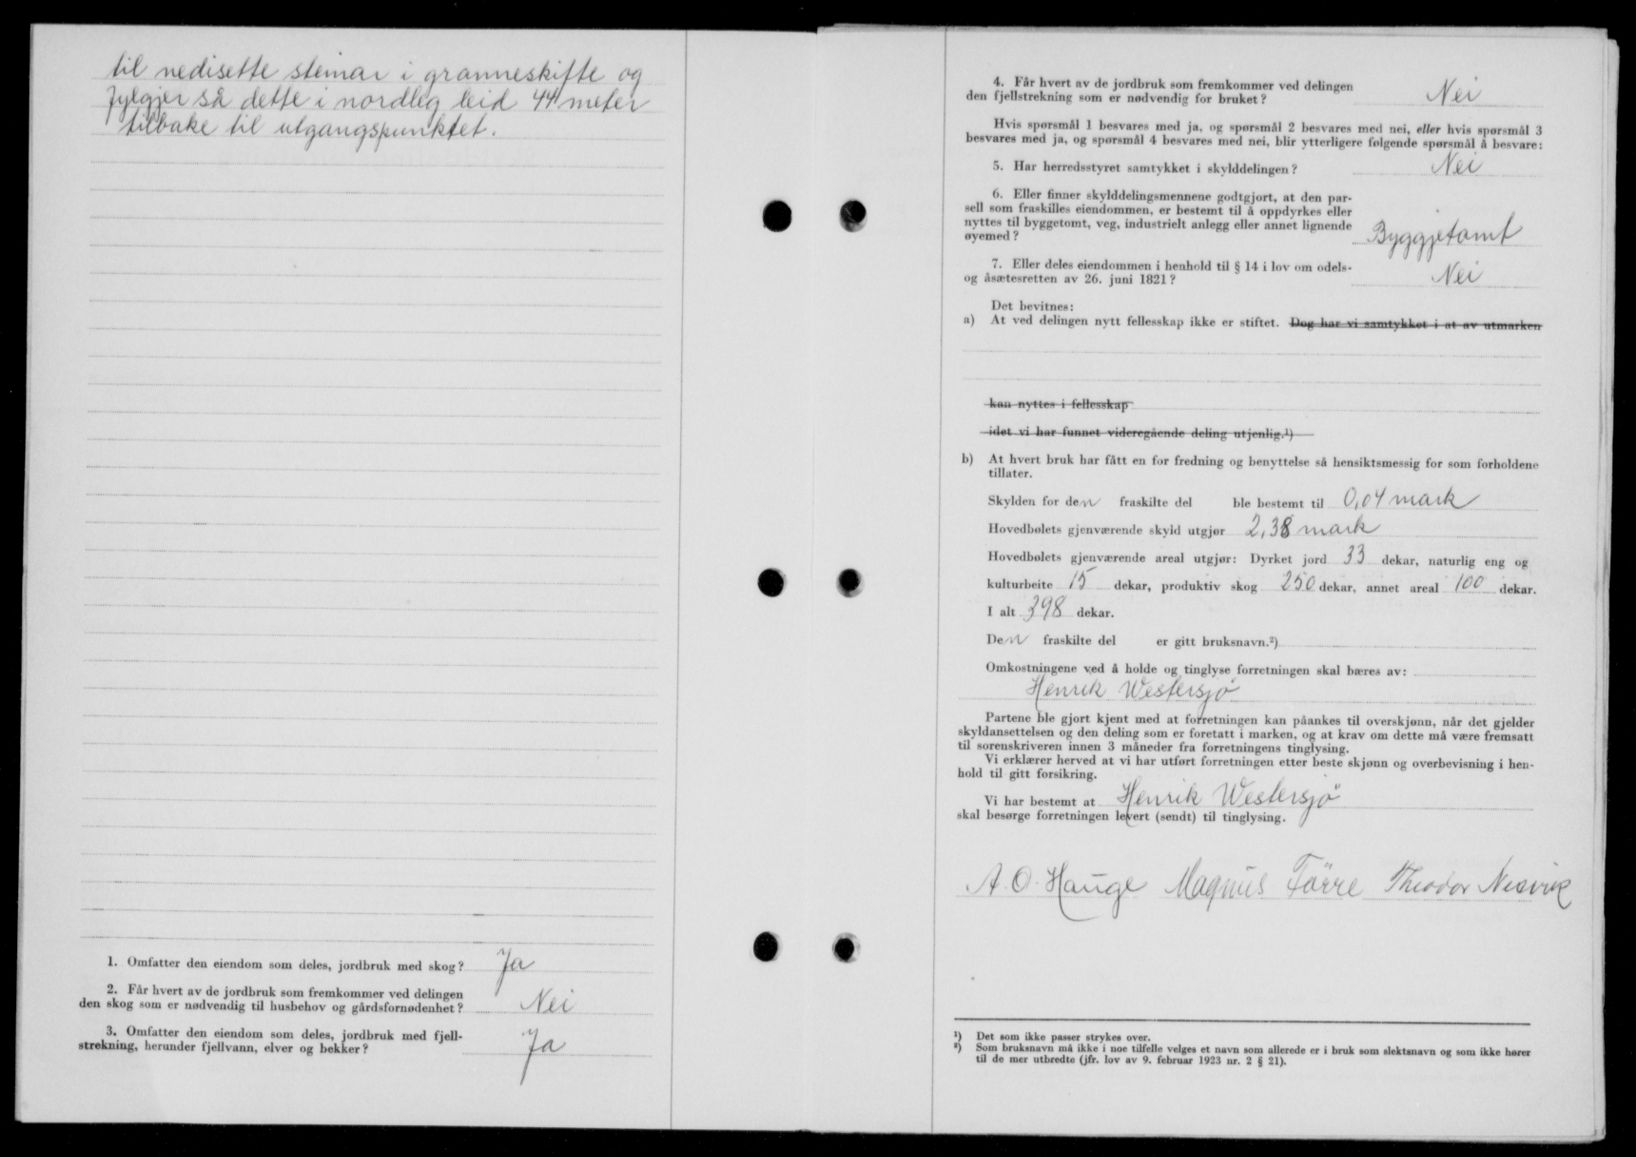 til nedisette steinar i granneskifte og
fylgjer så dette i nordleg leid 44 meter
tilbake til utgangspunktet.
1. Omfatter den eiendom som deles, jordbruk med skog? Ja
2. Får hvert av de jordbruk som fremkommer ved delingen
den skog som er nødvendig til husbehov og gårdsfornødenhet? Nei
3. Omfatter den eiendom som deles, jordbruk med fjell-
strekning, herunder fjellvann, elver og bekker? Ja
4. Får hvert av de jordbruk som fremkommer ved delingen
den fjellstrekning som er nødvendig for bruket? Nei
Hvis spørsmål 1 besvares med ja, og spørsmål 2 besvares med nei, eller hvis spørsmål 3
besvares med ja, og spørsmål 4 besvares med nei, blir ytterligere følgende spørsmål å besvare:
5. Har herredsstyret samtykket i skylddelingen? Nei
6. Eller finner skylddelingsmennene godtgjort, at den par-
sell som fraskilles eiendommen, er bestemt til å oppdyrkes eller
nyttes til byggetomt, veg, industrielt anlegg eller annet lignende
øyemed? Byggjetomt
7. Eller deles eiendommen i henhold til § 14 i lov om odels-
og åsætesretten av 26. juni 1821? Nei
Det bevitnes:
a) At ved delingen nytt fellesskap ikke er stiftet. Dog har vi samtykket i at av utmarken
kan nyttes i fellesskap
idet vi har funnet videregående deling utjenlig.¹)
b) At hvert bruk har fått en for fredning og benyttelse så hensiktsmessig for som forholdene
tillater.
Skylden for den fraskilte del ble bestemt til 0,04 mark
Hovedbølets gjenværende skyld utgjør 2,38 mark
Hovedbølets gjenværende areal utgjør: Dyrket jord 33 dekar, naturlig eng og
kulturbeite 15 dekar, produktiv skog 250 dekar, annet areal 100 dekar.
I alt 398 dekar.
Den fraskilte del er gitt bruksnavn.²)
Omkostningene ved å holde og tinglyse forretningen skal bæres av:
Henrik Westersjö
Partene ble gjort kjent med at forretningen kan påankes til overskjønn, når det gjelder
skyldansettelsen og den deling som er foretatt i marken, og at krav om dette må være fremsatt
til sorenskriveren innen 3 måneder fra forretningens tinglysing.
Vi erklærer herved at vi har utført forretningen etter beste skjønn og overbevisning i hen-
hold til gitt forsikring.
Vi har bestemt at Henrik Westersjö
skal besørge forretningen levert (sendt) til tinglysing.
A. O. Hauge Magnus Førre Theodor Nesvik
¹) Det som ikke passer strykes over.
²) Som bruksnavn må ikke i noe tilfelle velges et navn som allerede er i bruk som slektsnavn og som ikke hører
til de mer utbredte (jfr. lov av 9. februar 1923 nr. 2 § 21).